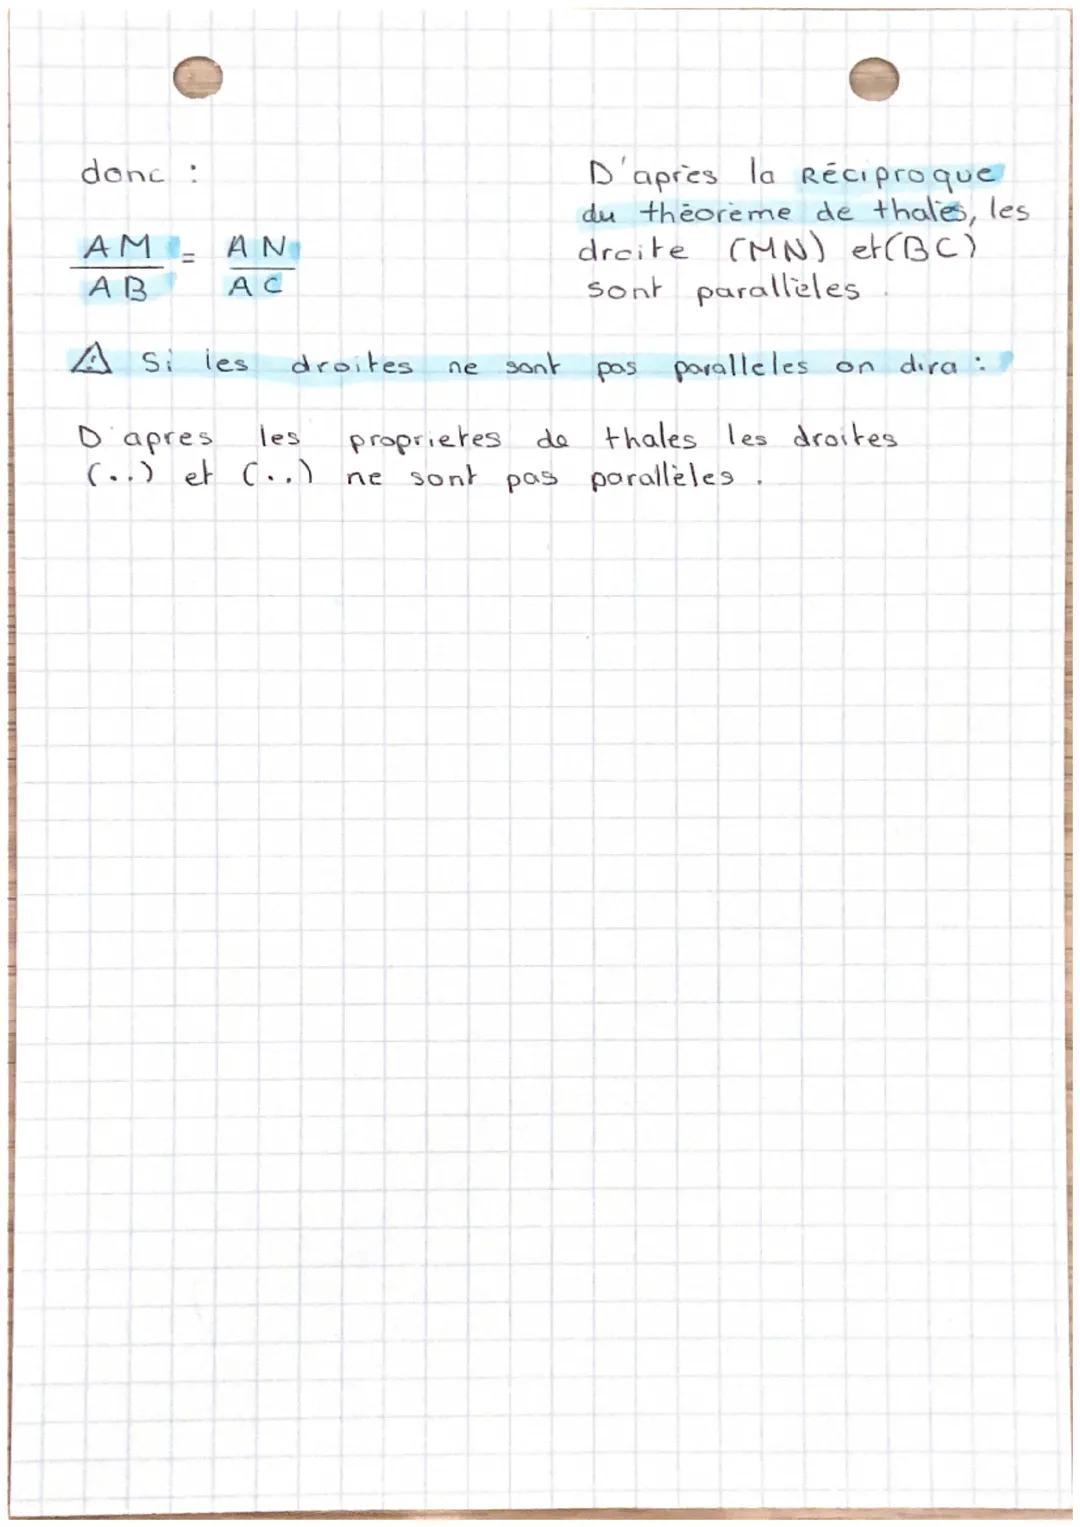 donc :
AM = AN
AB AC
D'après la Réciproque
du théorème de thalès, les
droite (MN) et (BC)
sont parallèles .
⚠ Si les droites ne sont pas paralleles on dira :
D'apres les proprietes de thales les droites
(..) et (..) ne sont pas parallèles .